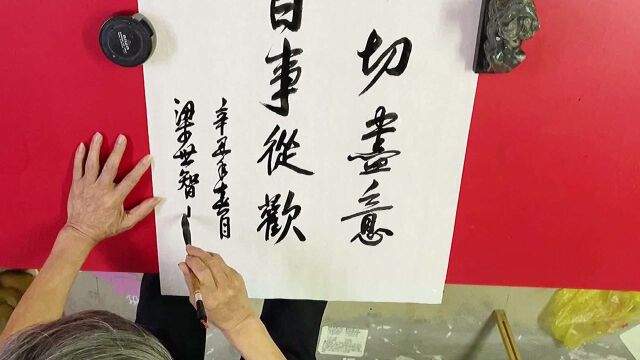 切盡意
百事從歡
辛丑年月
梁世智